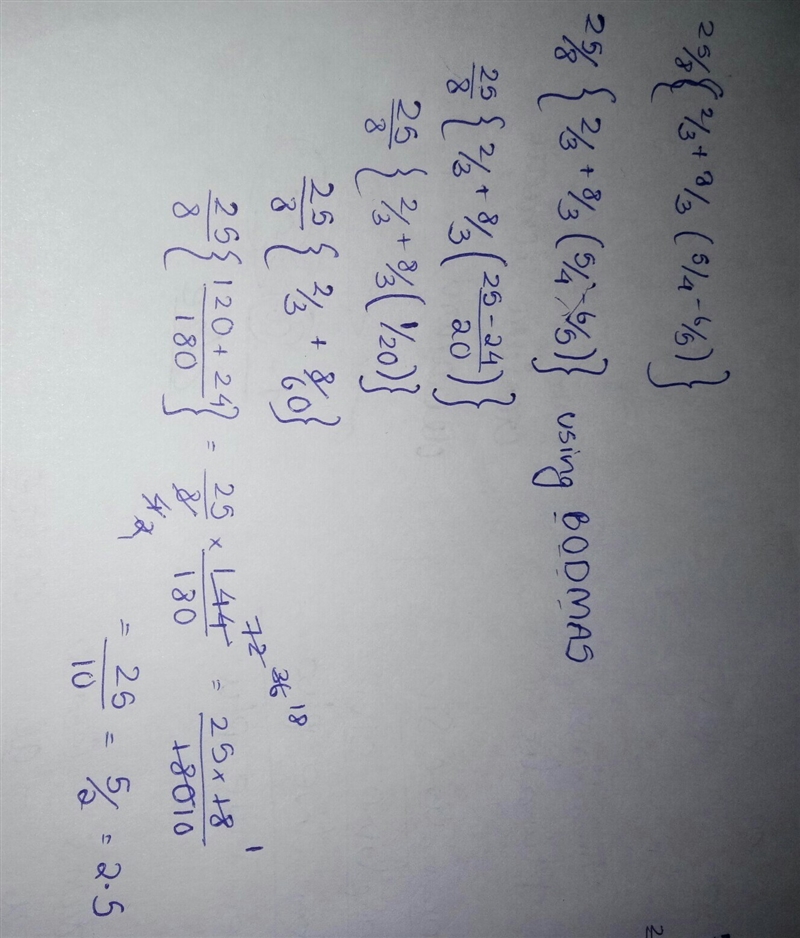 25/8 { 2/3 + 8/3 ( 5/4 - 6/5 ) }
25/8 { 2/3 + 8/3 ( 5/4 - 6/5 ) } using BODMAS
25/8 { 2/3 + 8/3 ( 25 - 24/20 ) }
25/8 { 2/3 + 8/3 ( 1/20 ) }
25/8 { 2/3 + 8/60 }
25/8 { 120 + 24/180 } = 25/8 × 144/180 = 25 × 18/180 10
4 2 1 72 36 18 1
= 25/10 = 5/2 = 2.5